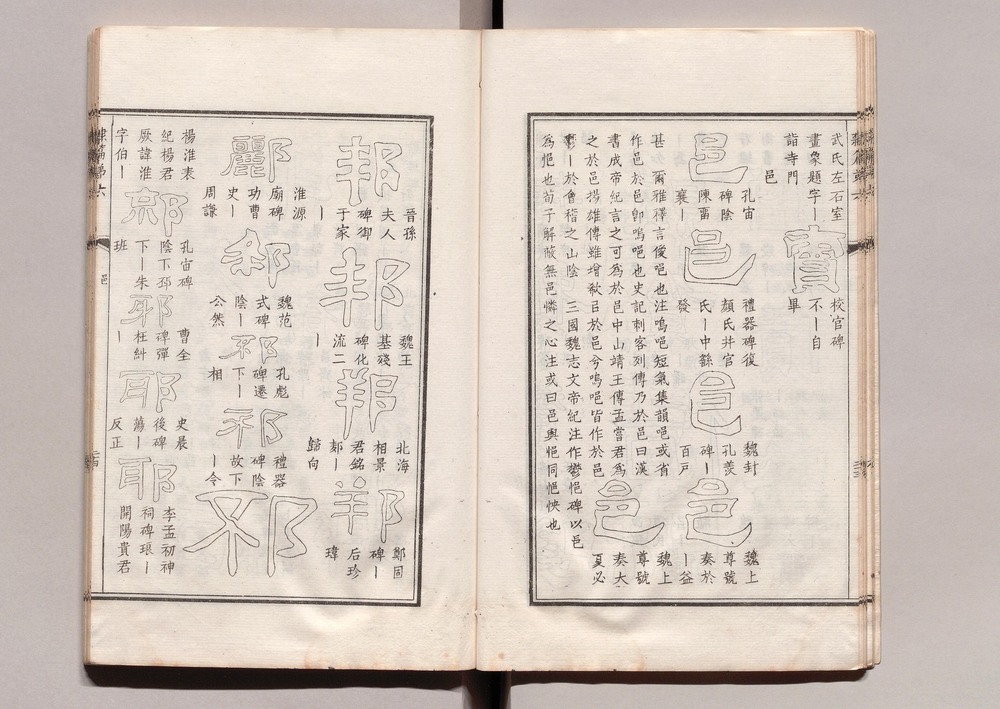 武氏左石室
畫象題字丨
詣寺門
寳
校官碑
不丨自
畢
邑
邑
孔宙
碑陰
陳畱
襄丨
邑
禮器碑復
顏氏幵官
氏丨中繇
發
邑
魏封
孔羨
碑丨
百戸
邑
魏上
尊號
奏於
丨益
甚 爾雅釋言僾唈也注嗚唈短氣集韻唈或省
作邑於邑卽嗚唈也史記刺客列傳乃於邑曰漢
書成帝紀言之可爲於邑中山靖王傳孟嘗君爲
之於邑揚雄傳雖增欷㠯於邑兮嗚唈皆作於邑
邑
魏上
尊號
奏大
夏必
鬱丨於會稽之山陰 三國魏志文帝紀注作鬱悒碑以邑
爲悒也荀子解蔽無邑憐之心注或曰邑與悒同悒怏也
邦
晉孫
夫人
碑御
于家
丨
邦
魏王
基殘
碑化
流二
丨
邦
北海
相景
君銘
丨
歸向
邦
鄭固
碑丨
后珍
瑋
酈
淮源
廟碑
功曹
史丨
周謙
魏范
式碑
陰丨
公然
邳
孔彪
碑遷
下丨
相
邳
禮器
碑陰
故下
丨令
邳
楊淮表
紀楊君
厥諱淮
字伯丨
孔宙碑
陰下邳
下丨朱
班
邪
曹全
碑彈
枉糾
丨
耶
史晨
後碑
蕩丨
反正
耶
李孟初神
祠碑琅丨
開陽貴君
邑